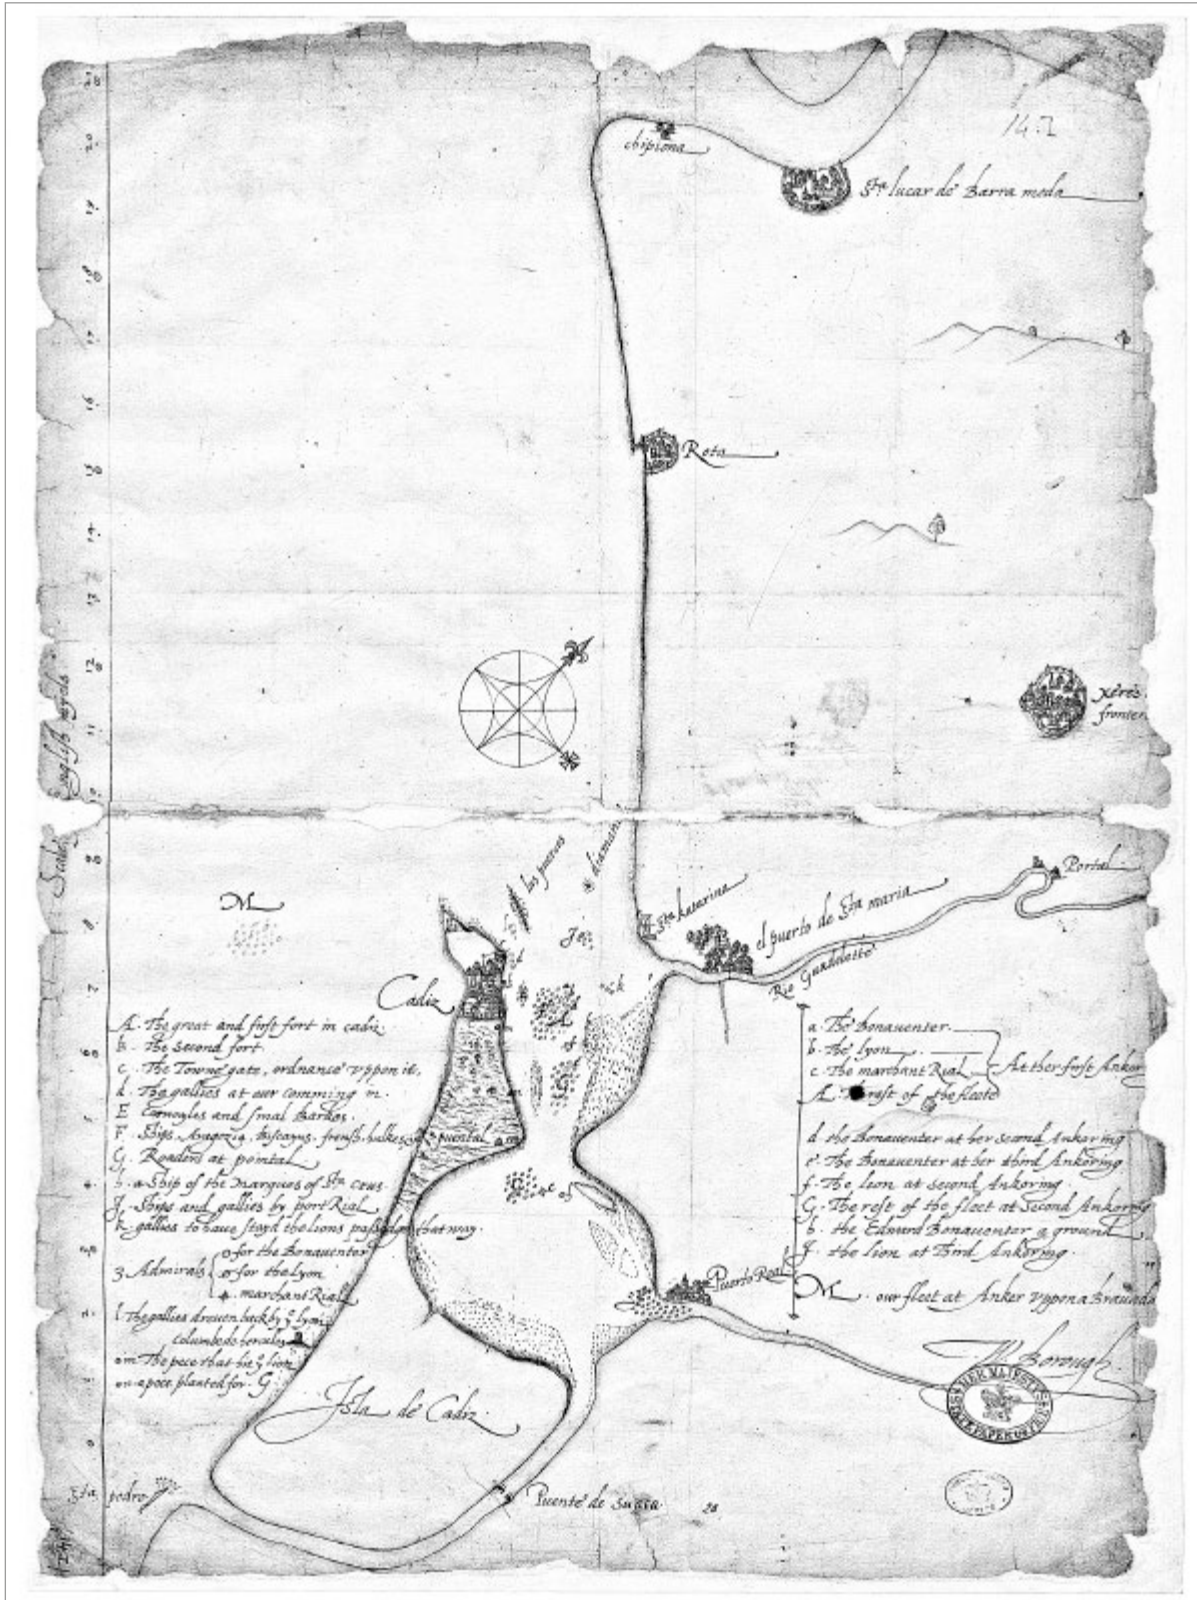 142
chipiona
Sta lucar de Barra meda
Rota
Xeres
fronter
English myels
Scale
las puercas
diamant
Sta katarina
el puerto de Sta maria
Portal
Rio Guadelette
M
Cadiz
A. The great and first fort in cadiz
B. The second fort.
c. The Towne gate, ordnance vppon it,
d. The gallies at our comming in.
E and smal Barkes.
F. Ships,
G. Roaders at pointal
h. a Ship of the Marques of Sta crus
J. Ships and gallies by port Rial
k. gallies to haue stayd the lions that way.
3. Admirals
o for the Bonauenter
for the Lyon
marchant Rial
l The gallies droven back by ye lyon
Columbe de hercules
m The pece that hit ye lion
n a pece planted for. G
puental
a The Bonauenter
b. The Lyon
c. The marchant Rial
At ther first Anker
rest of the fleete
d. the Bonauenter at her second Ankoring
e. The Bonauenter at her third Ankoring
f. The lion at second Ankoring.
G. The rest of the fleet at Second Ankoring
h. the Edward Bonauenter a ground
J. the lion at Third Ankoring.
M. our fleet at Anker vppon a Bravado
Puerto Real
W Borough.
HER MAJESTY'S STATE PAPER OFFICE
Isla de Cadiz
Sta pedro
Puente de suaca
28.